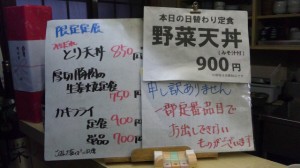 限定定食
とり天丼 850円
厚切豚肉の
生姜焼定食
750円
カキフライ
定食 900
単品 700円
本日の日替わり定食
野菜天丼
(みそ汁付)
900円
申し訳ありません
一部定番品目で
お出しできない
ものがございます